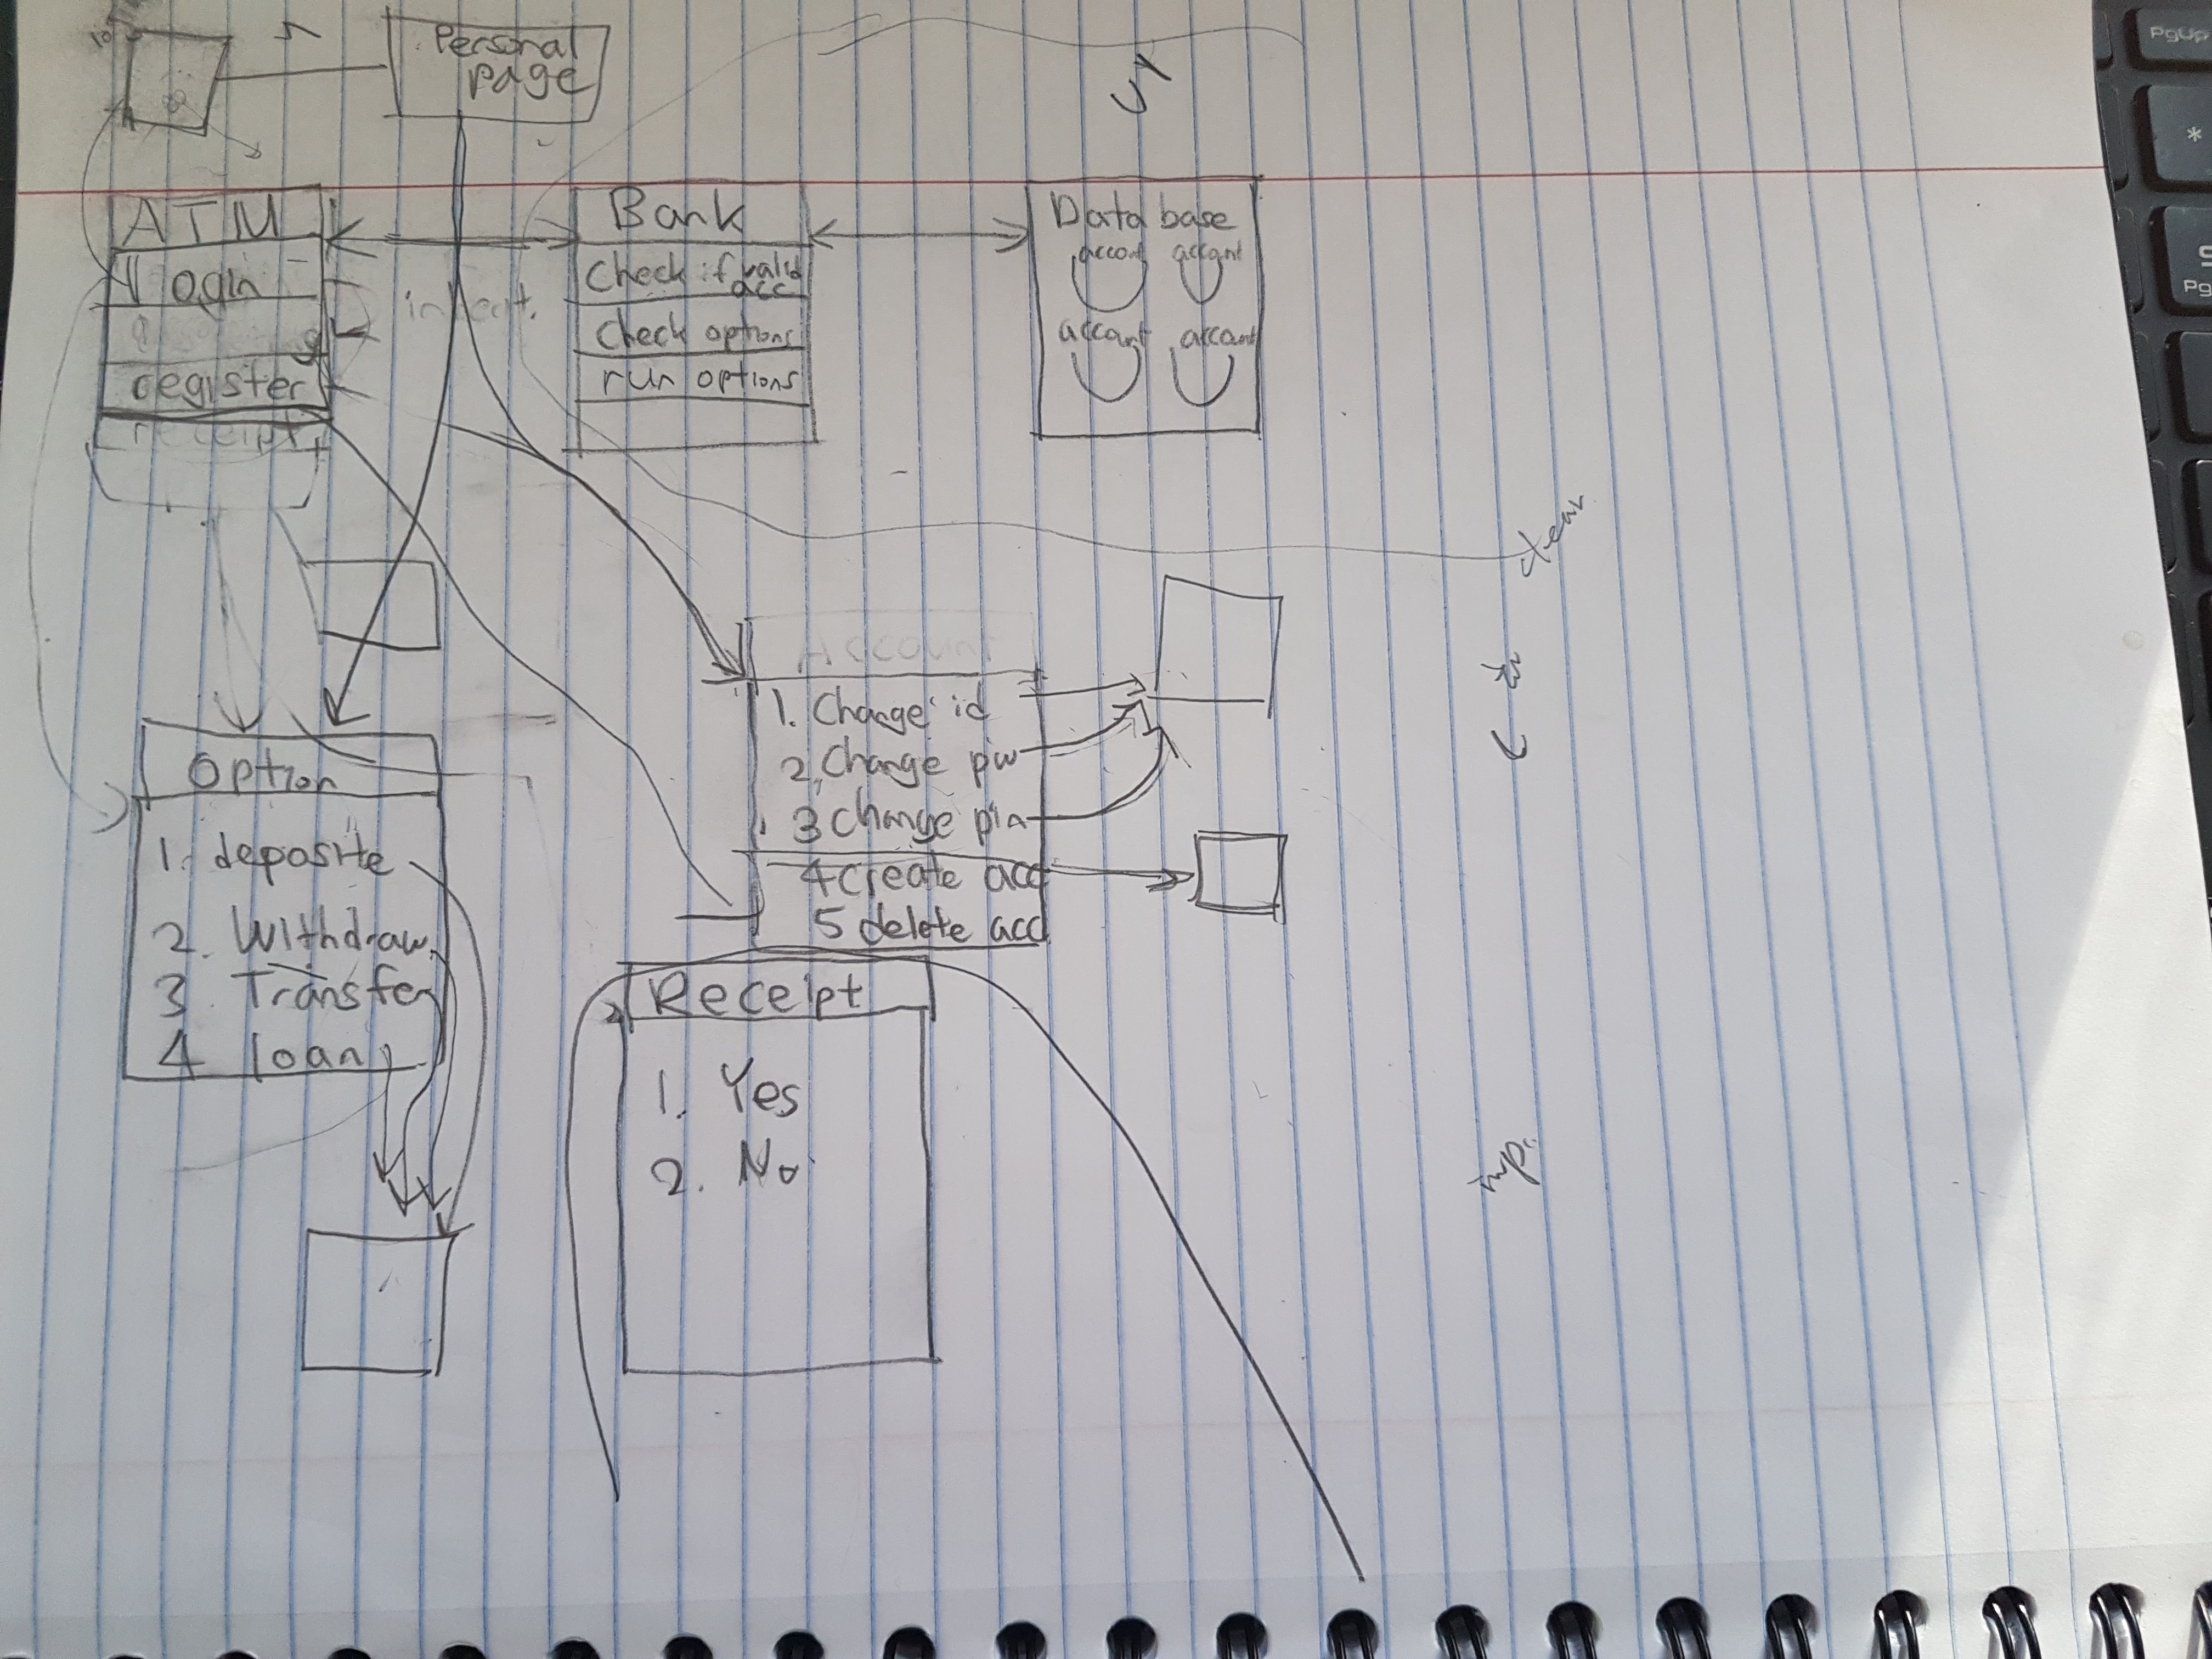 Personal
page
ATM
login
register
receipt
insert
Bank
Check if valid
acc
Check options
run options
Data base
account
account
account
account
Option
1. deposite
2. Withdraw
3. Transfer
4 loan
Account
1. Change id
2, Change pw
3 Change pin
4 Create acc
5 delete acc
Receipt
1. Yes
2. No
*
PgUp